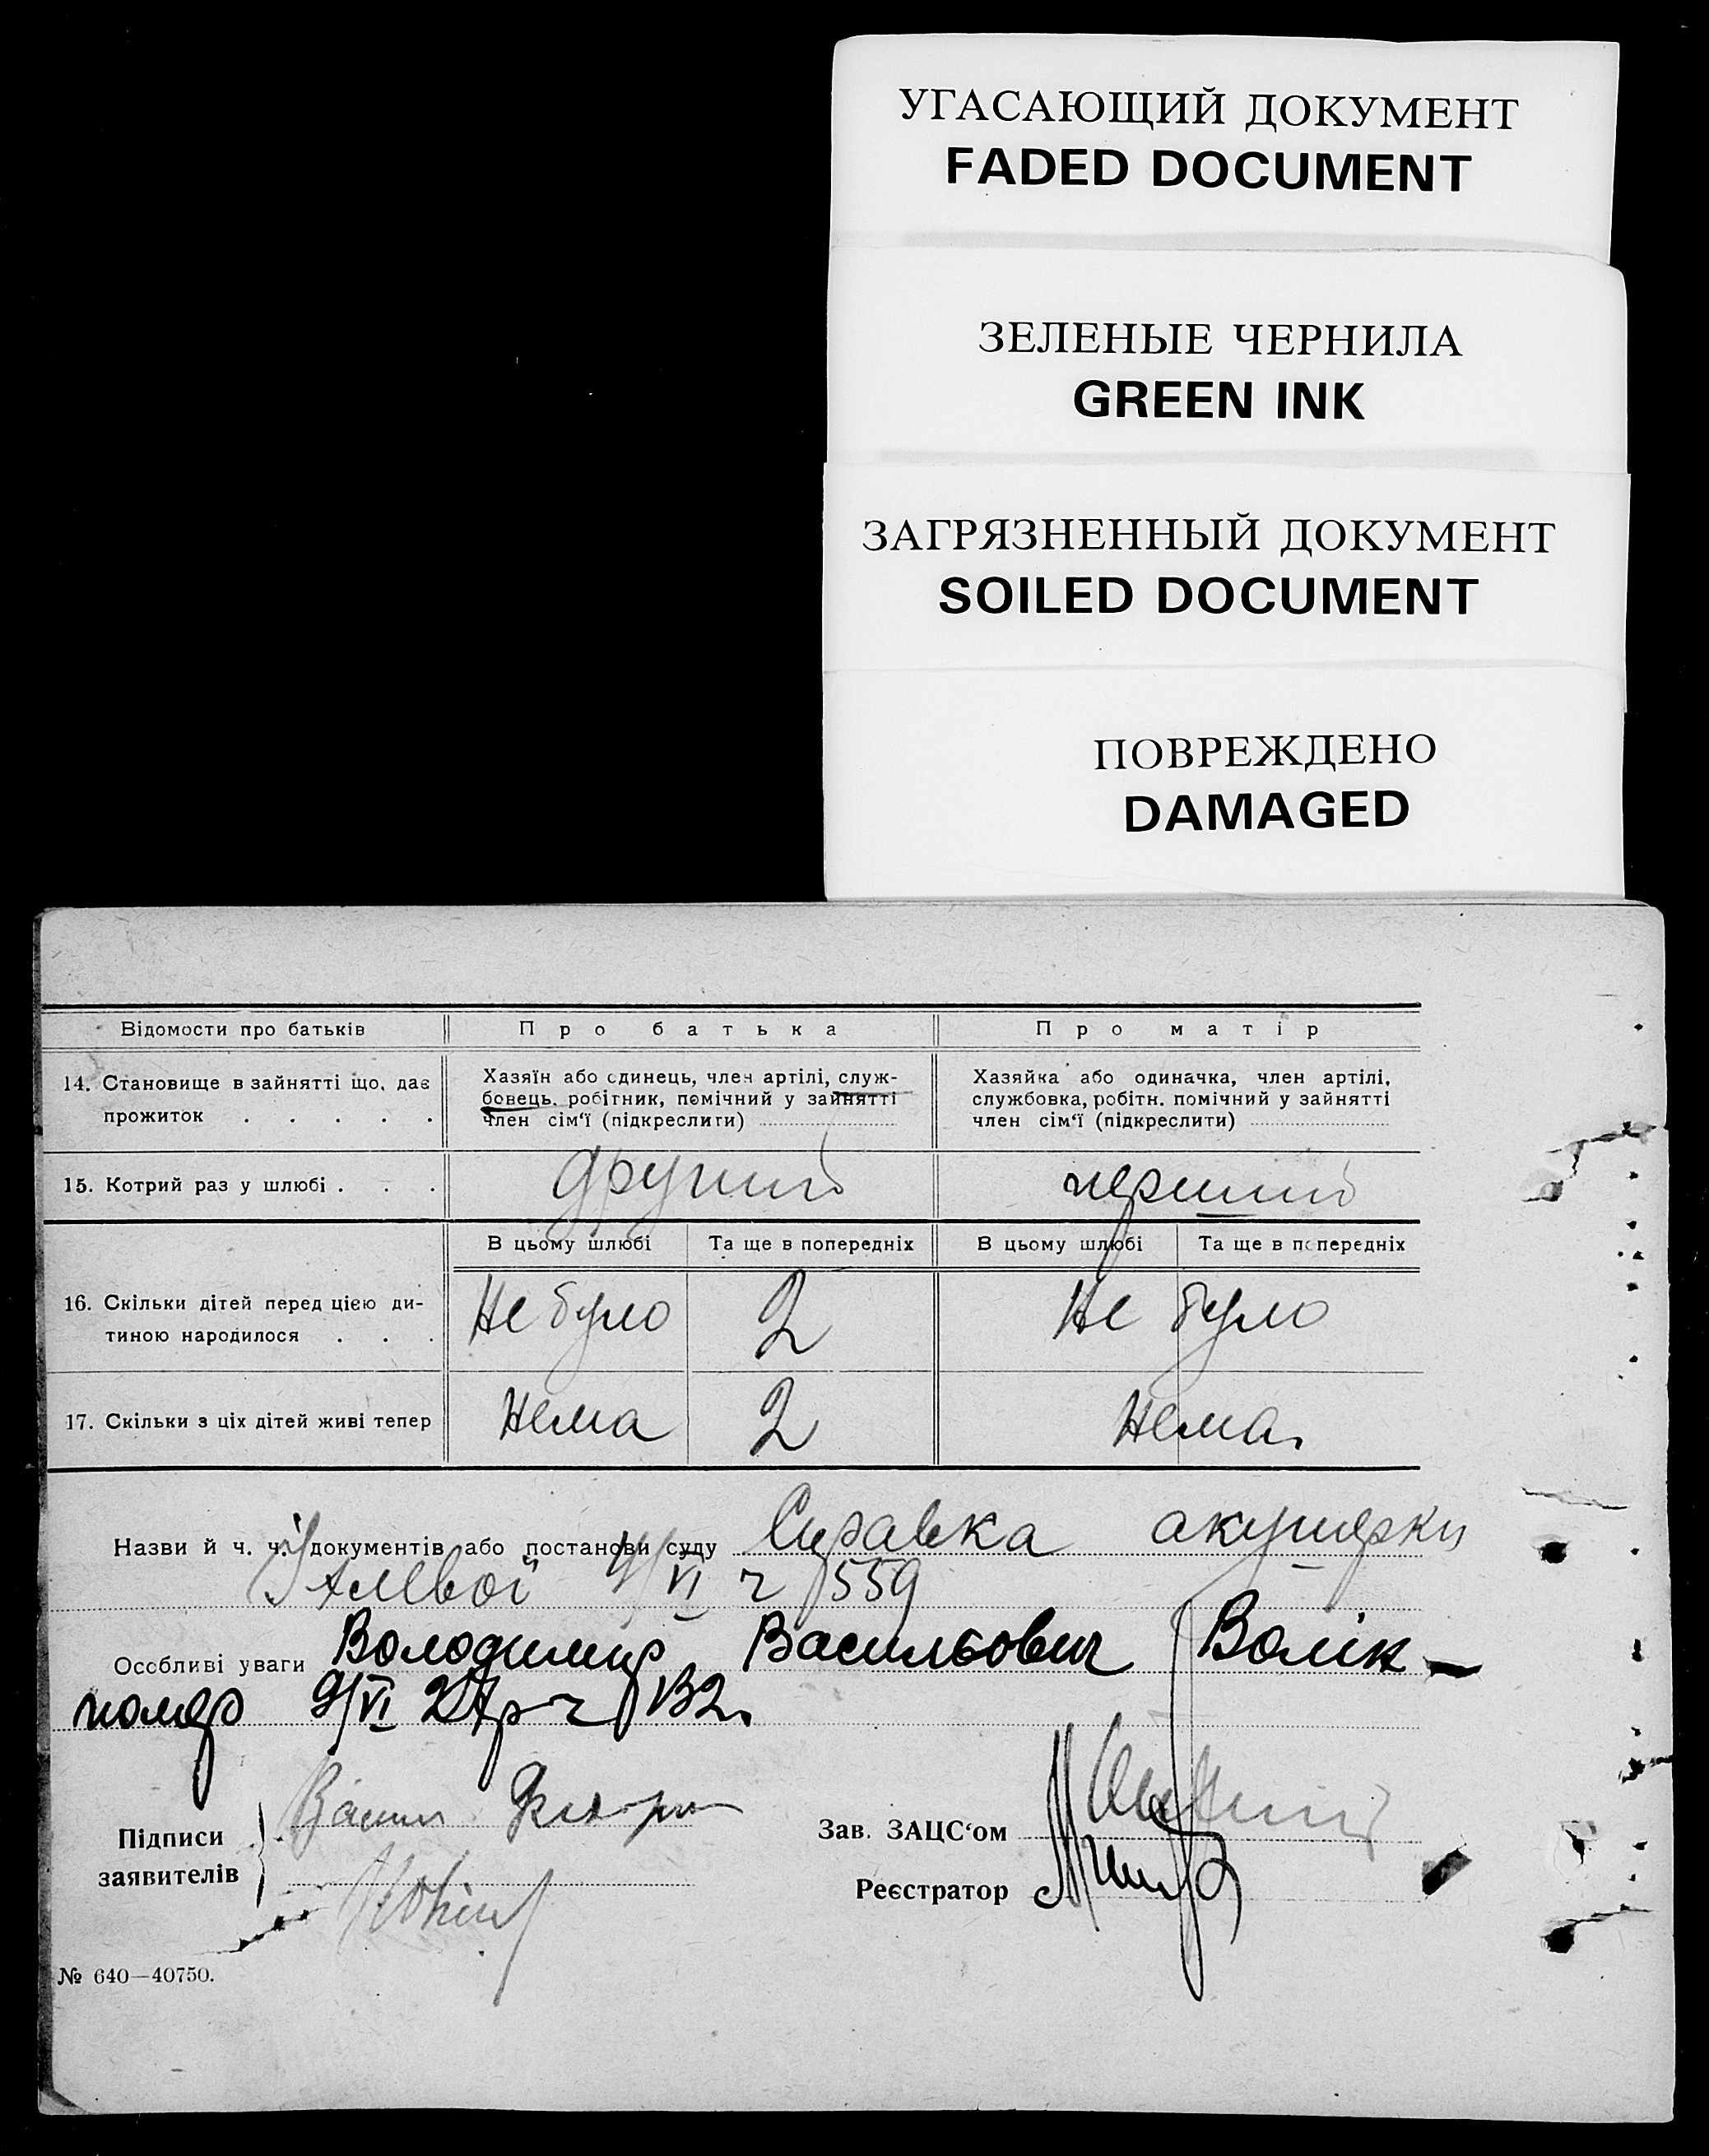 УГАСАЮЩИЙ ДОКУМЕНТ
FADED DOCUMENT
ЗЕЛЕНЫЕ ЧЕРНИЛА
GREEN INK
ЗАГРЯЗНЕННЫЙ ДОКУМЕНТ
SOILED DOCUMENT
ПОВРЕЖДЕНО
DAMAGED
Відомости про батьків Про батька Про матір
14. Становище в зайнятті що, дає прожиток . . . . .
Хазяїн або єдинець, член артілі, служ-
бовець, робітник, помічний у зайнятті
член сім'ї (підкреслити)
Хазяйка або одиначка, член артілі,
службовка, робітн. помічний у зайнятті
член сім'ї (підкреслити)
15. Котрий раз у шлюбі . . . другий перший
В цьому шлюбі Та ще в попередніх В цьому шлюбі Та ще в попередніх
16. Скільки дітей перед цією ди-
тиною народилося . . . Не було 2 Не було
17. Скільки з ціх дітей живі тепер Нема 2 Нема.
Назви й ч. ч. документів або постанови суду Справка акушерки
9/VI ч 559
Особливі уваги Володимир Васильович Волік —
помер 9/VI 27 р ч 132.
Підписи
заявителів
Зав. ЗАЦС'ом
Реєстратор
№ 640—40750.